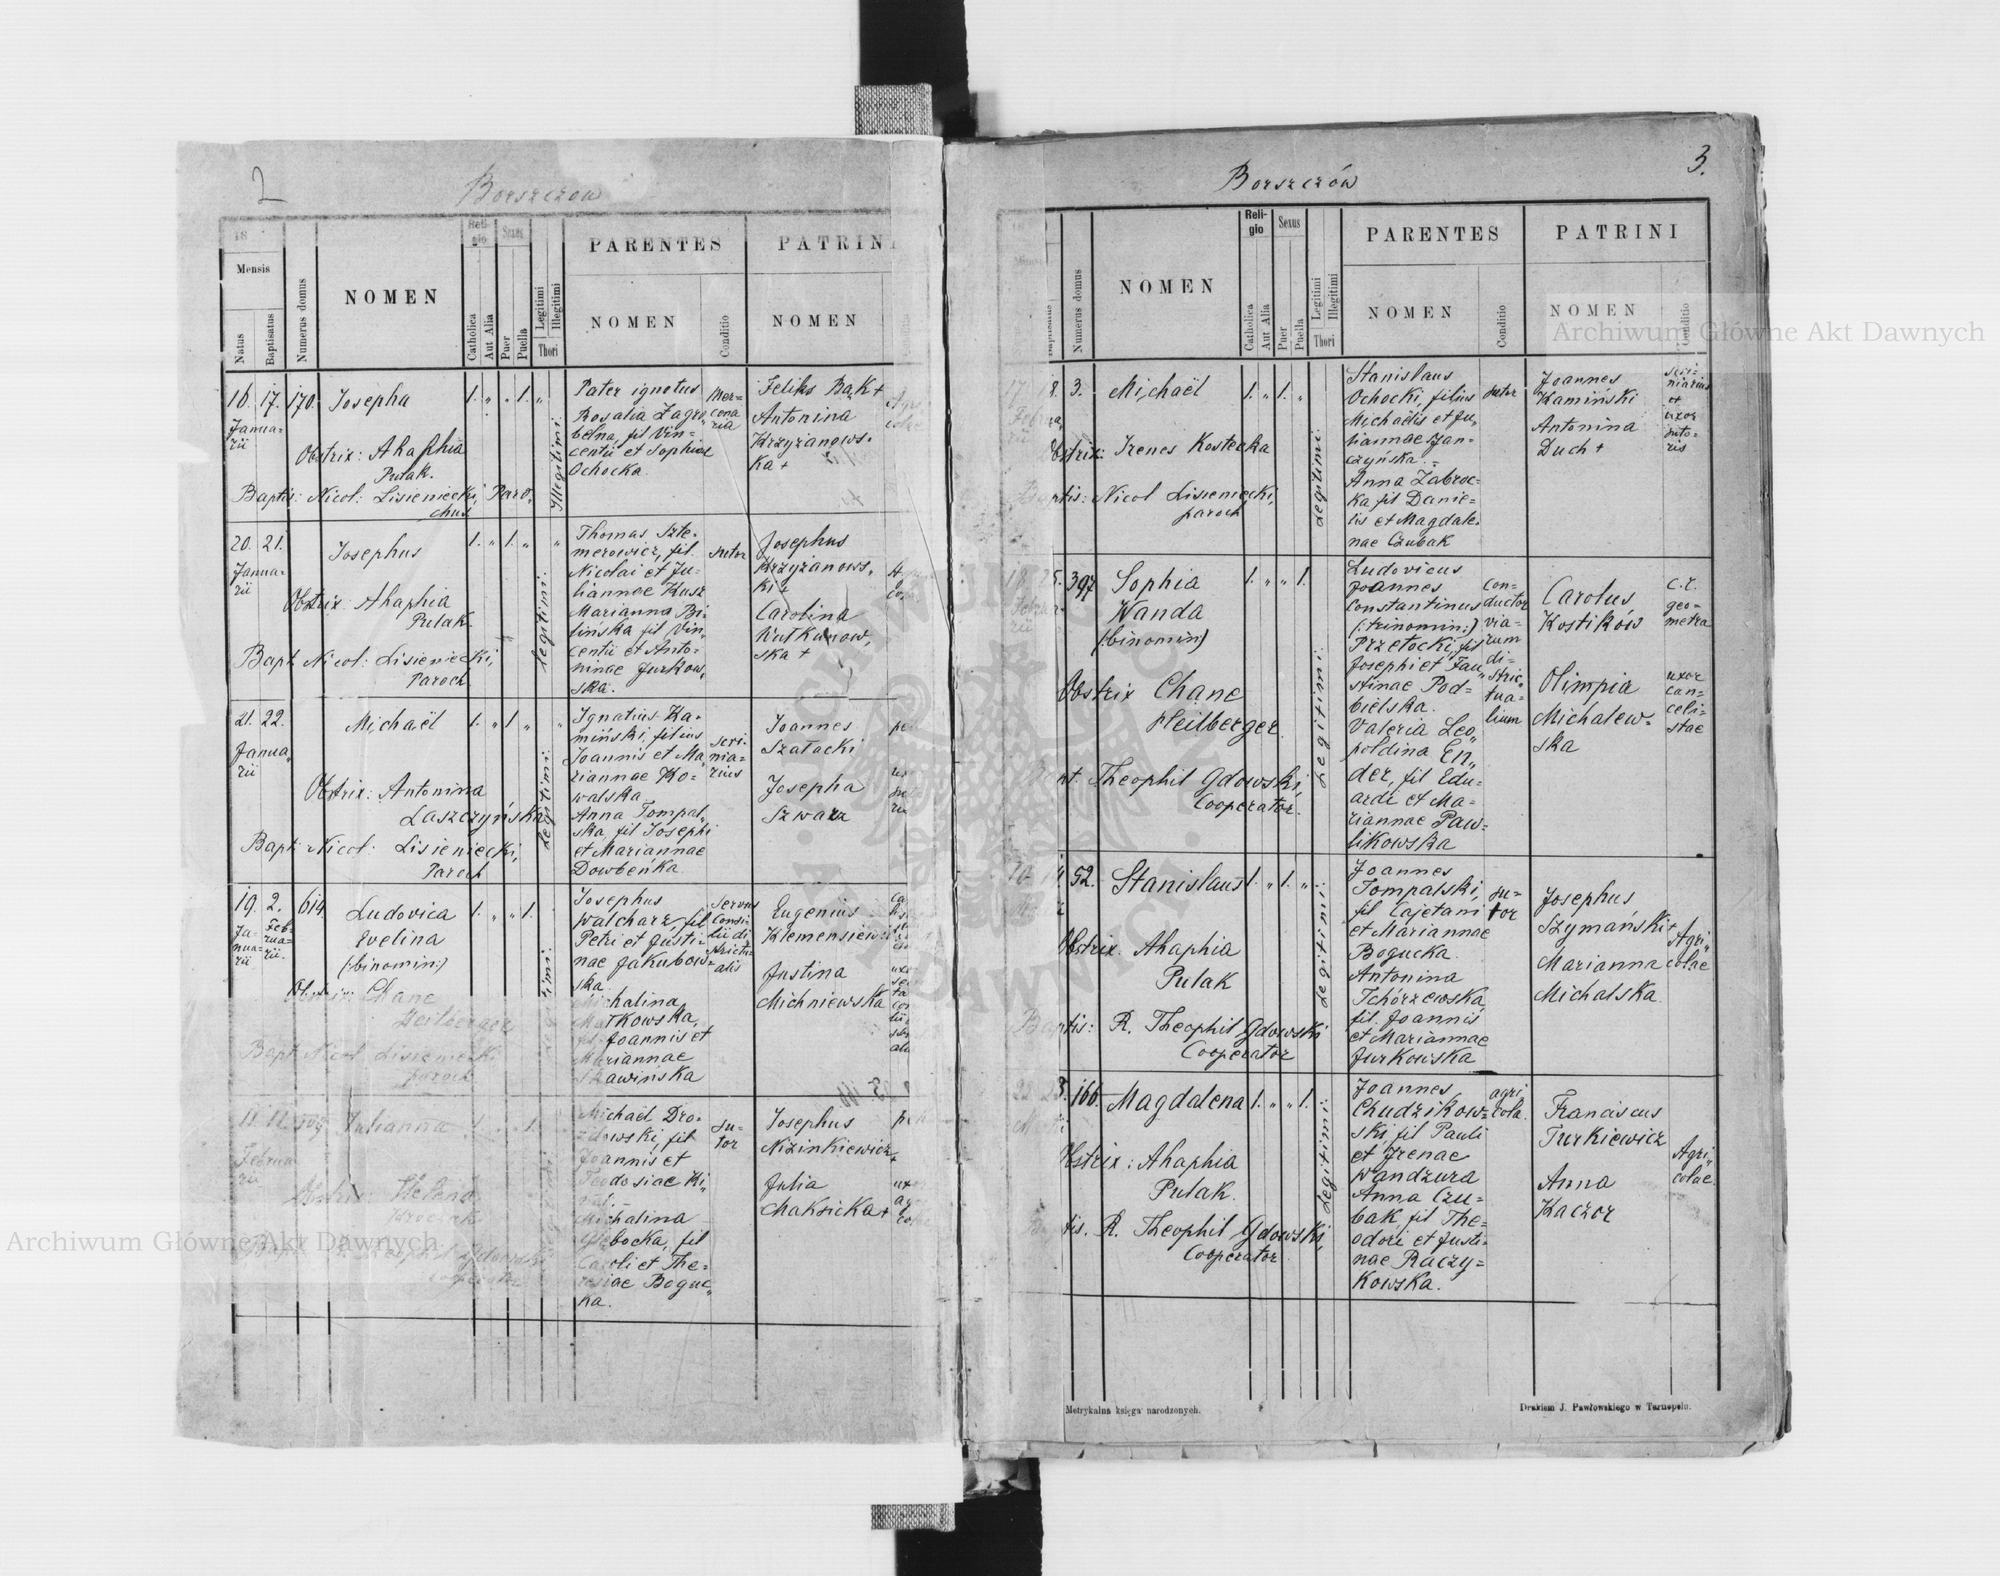 2
Borszczow
18
Mensis
Natus
Baptisatus
Numerus domus
NOMEN
Reli-
gio
Catholica
Aut Alia
Sexus
Puer
Puella
Legitimi
Illegitimi
Thori
PARENTES
NOMEN
Conditio
PATRINI
NOMEN
16. 17. 170.
Janua-
rii
Josepha
1. " . 1. "
Obstrix: Ahaphia
Pulak.
Baptis: Nicol: Lisieniecki, Paro,
chus
Illegitimi:
Pater ignotus
Rosalia Zagro
belna, fil Vin-
centii et Sophiae
Ochocka.
Mer-
cona
ria
Feliks Bak +
Antonina
Krzyżanows-
ka +
20. 21.
Janua-
rii
Josephus
1. " 1. " "
Obstrix Ahaphia
Pulak.
Bapt Nicol: Lisieniecki,
Paroch
Legitimi:
Thomas Szte-
merowicz, fil.
Nicolai et Ju-
liannae Kusz
Marianna Bi-
lińska fil Vin,
centii et Anto-
ninae Jurkow,
ska.
sutor
Josephus
Krzyżanows,
ki +
Carolina
Rutkanow,
ska +
21. 22.
Janua,
rii
Michaël
1. " 1 " "
Obstrix: Antonina
Laszczyńska
Bapt Nicol: Lisieniecki,
Paroch
Legitimi:
Ignatius Ka-
miński, filius
Joannis et Ma,
riannae Ko-
walska
Anna Tompal-
ska, fil Josephi
et Mariannae
Dowbeńka
scri-
nia-
rius
Joannes
Szałacki
Josepha
Szwarz
19. 2. 614.
Ja-
nua-
rii
Feb-
rua-
rii.
Ludovica
Evelina
(:binomin:)
1. " " 1.
Obstrix: Chane
Heilberger
Bapt Nicol Lisieniecki
paroch
Josephus
Walcharz, fil
Petri et Justi-
nae Jakubow-
ska
Michalina
Matkowska,
fil Joannis et
Mariannae
Skawińska
servus
Consi-
lii di
strictu-
alis
Eugenius
Klemensiewi
Justina
Michniewska
11. 12. 509
Februa
rii
Julianna
1. 1.
Obstrix: Helena
Kroczak
Bapt R. Theophil Gdowski
Cooperator
Michaël Dro-
zdowski, fil
Joannis et
Teodosiae Ki,
Michalina
Głębocka, fil
Caroli et The-
resiae Boguc,
ka.
su-
tor
Josephus
Niżinkiewicz
+
Julia
Maksicka +
3.
Borszczów
Baptisatus
Numerus domus
NOMEN
Reli-
gio
Catholica
Aut Alia
Sexus
Puer
Puella
Legitimi
Illegitimi
Thori
PARENTES
NOMEN
Conditio
PATRINI
NOMEN
Conditio
17. 18. 3.
Februa,
rii
Michaël
1. " 1. "
Obstrix: Irenes Kostecka
Baptis: Nicol Lisieniecki,
paroch
Legitimi:
Stanislaus
Ochocki, filius
Michaëlis et Ju,
liannae Szan-
czyńska.
Anna Zabroc-
ka fil Danie-
lis et Magdale-
nae Czubak
sutor
Joannes
Kamiński
Antonina
Duch +
scri-
niarius
et
uxor
suto-
ris
18. 25. 397
Februa-
rii
Sophia
Wanda
(:binomin)
1. " " 1.
Obstrix Chane
Heilberger
Bapt. Theophil Gdowski,
Cooperator.
Legitimi:
Ludovicus
Joannes
Constantinus
(:trinomin:)
Przetocki, fil
Josephi et Fau,
stinae Pod-
bielska.
Valeria Leo,
poldina En,
der, fil Edu-
ardi et Ma-
riannae Paw-
likowska
con-
ductor
via-
rum
di-
stric-
tua-
lium
Carolus
Kostików
Olimpia
Michalew-
ska
c. r.
geo-
metra
uxor
can-
celi-
stae
52.
Stanislaus
1. " 1. "
Obstrix. Ahaphia
Pulak
Baptis: R. Theophil Gdowski
Cooperator
Legitimi:
Joannes
Tompalski,
fil Cajetani
et Mariannae
Bogucka.
Antonina
Tchórzewska,
fil. Joannis
et Mariannae
Jurkowska
su-
tor
Josephus
Szymański +
Marianna
Michalska
Agri,
colae
166.
Magdalena
1. " " 1.
Obstrix: Ahaphia
Pulak.
Baptis. R. Theophil Gdowski,
Cooperator
Legitimi:
Joannes
Chudzikow-
ski, fil Pauli
et Irenae
Wandzura
Anna Czu-
bak, fil The-
odori et Justi-
nae Raczy-
kowska.
agri
cola.
Franciscus
Turkiewicz
Anna
Kaczor
Agri,
colae.
Metrykalna księga narodzonych.
Drukiem J. Pawłowskiego w Tarnopolu.
Archiwum Główne Akt Dawnych
Archiwum Główne Akt Dawnych